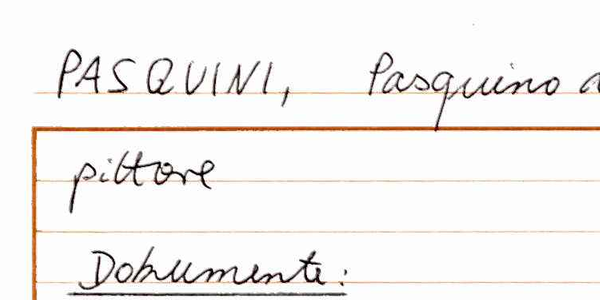 PASQUINI, Pasquino
pittore
Dokumente: